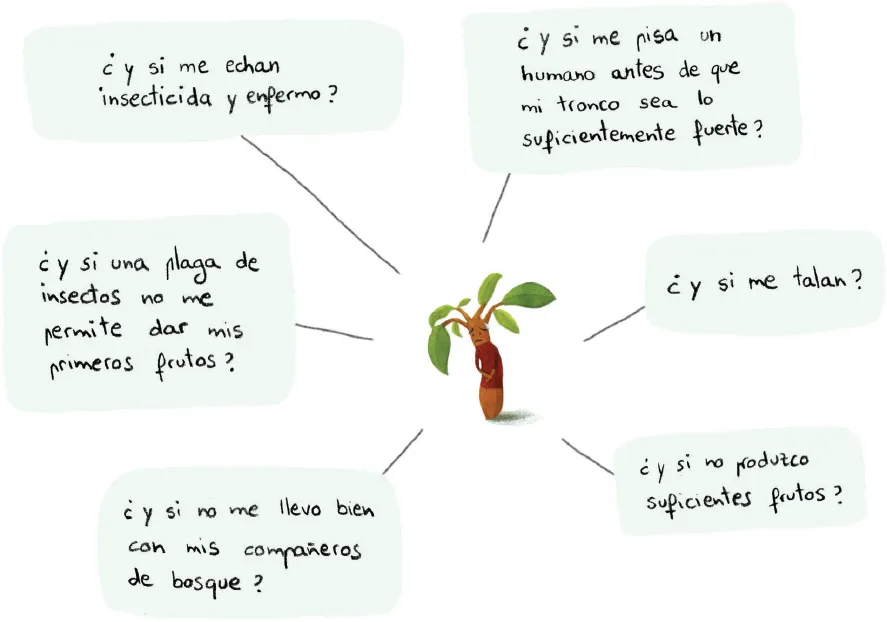 ¿y si me echan
insecticida y enfermo?
¿y si me pisa un
humano antes de que
mi tronco sea lo
suficientemente fuerte?
¿y si una plaga de
insectos no me
permite dar mis
primeros frutos?
¿y si me talan?
¿y si no me llevo bien
con mis compañeros
de bosque?
¿y si no produzco
suficientes frutos?